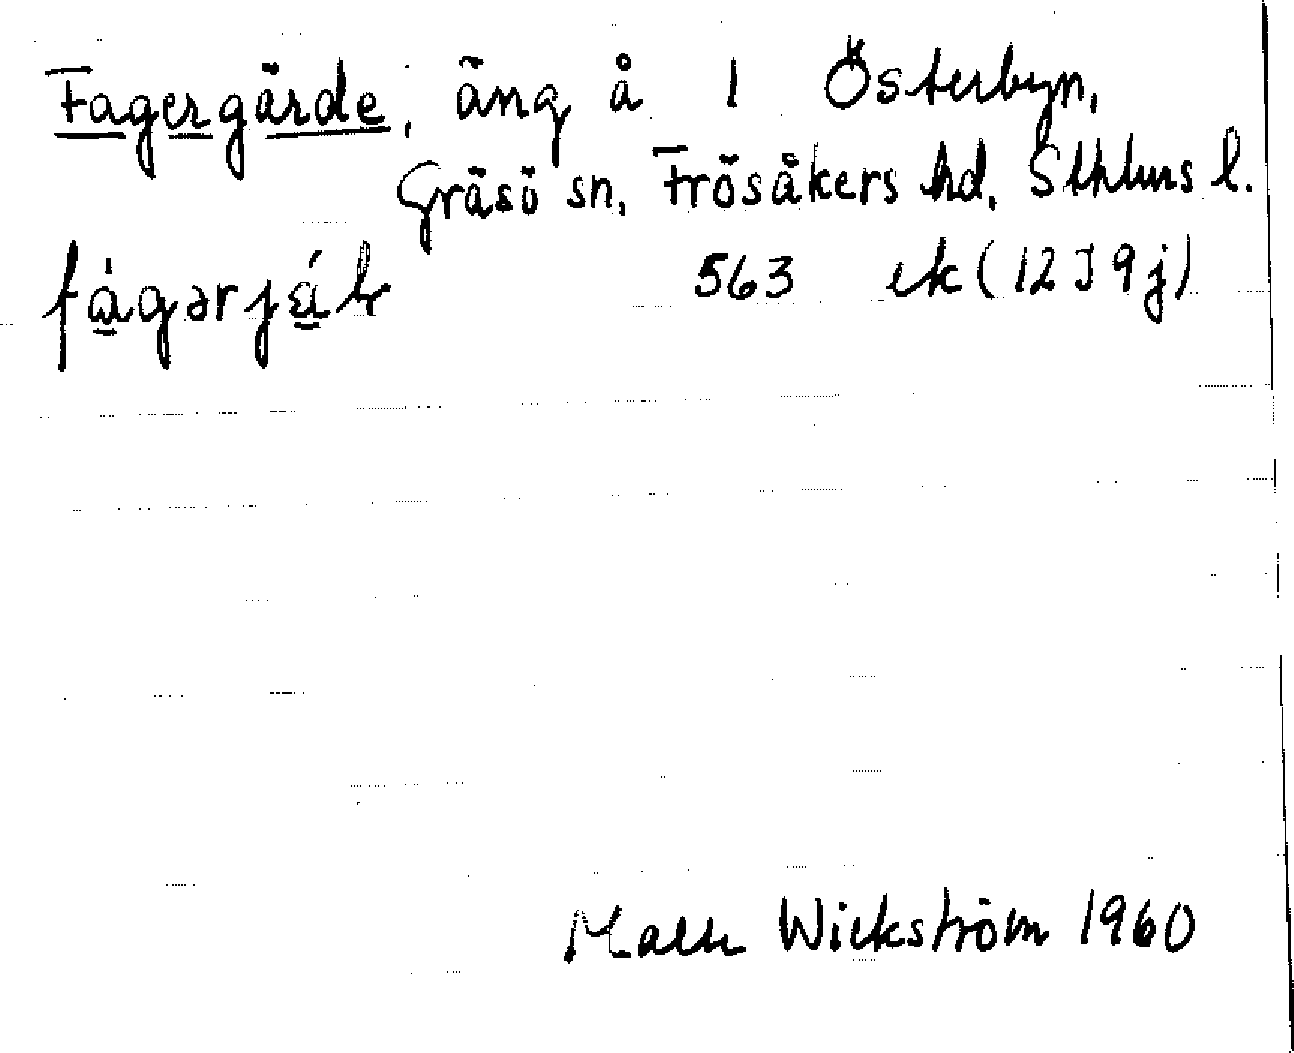 Fagergärde, äng å 1 Österbyn,
Gräsö sn, Frösåkers hd, Sthlms l.
563 ek (12 I 9 j)
Wickström 1960